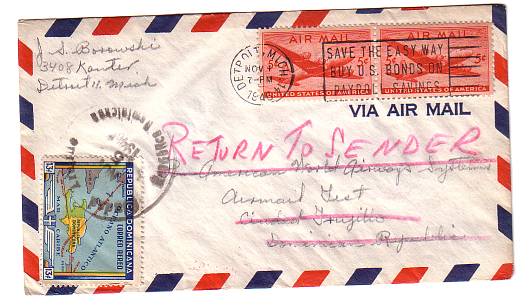 J. S. Borowski
3408 Kanter
Detroit 11. Mich
DETROIT, MICH.
NOV
7-PM
SAVE THE EASY WAY
BUY U.S. BONDS ON
PAYROLL SAVINGS
AIR MAIL
5¢
UNITED STATES OF AMERICA
AIR MAIL
5¢
UNITED STATES OF AMERICA
VIA AIR MAIL
RETURN TO SENDER
American World Airways System
Airmail Test
Ciudad Trujillo
Dominican Republic
REPUBLICA DOMINICANA
CORREO AEREO
OCEANO ATLANTICO
MAR CARIBE
13¢
13¢